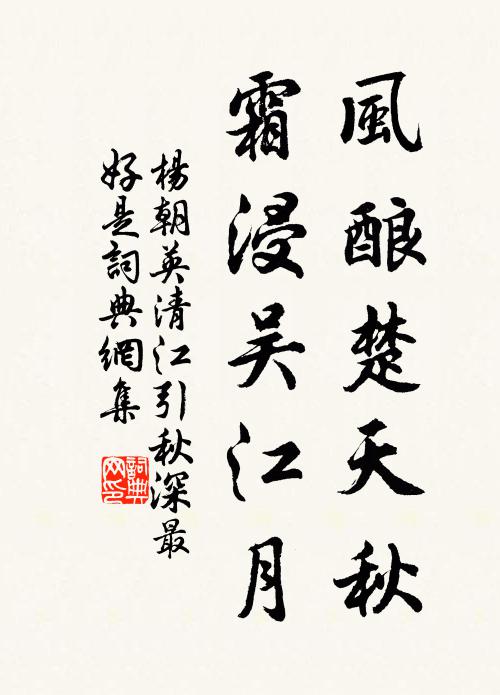 風酿楚天秋
霜浸吴江月
楊朝英清江引秋深最
好是詞典網集
詞典
网印